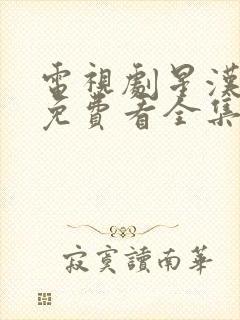 電視劇星漢
免費看全集
寂寞讀南華